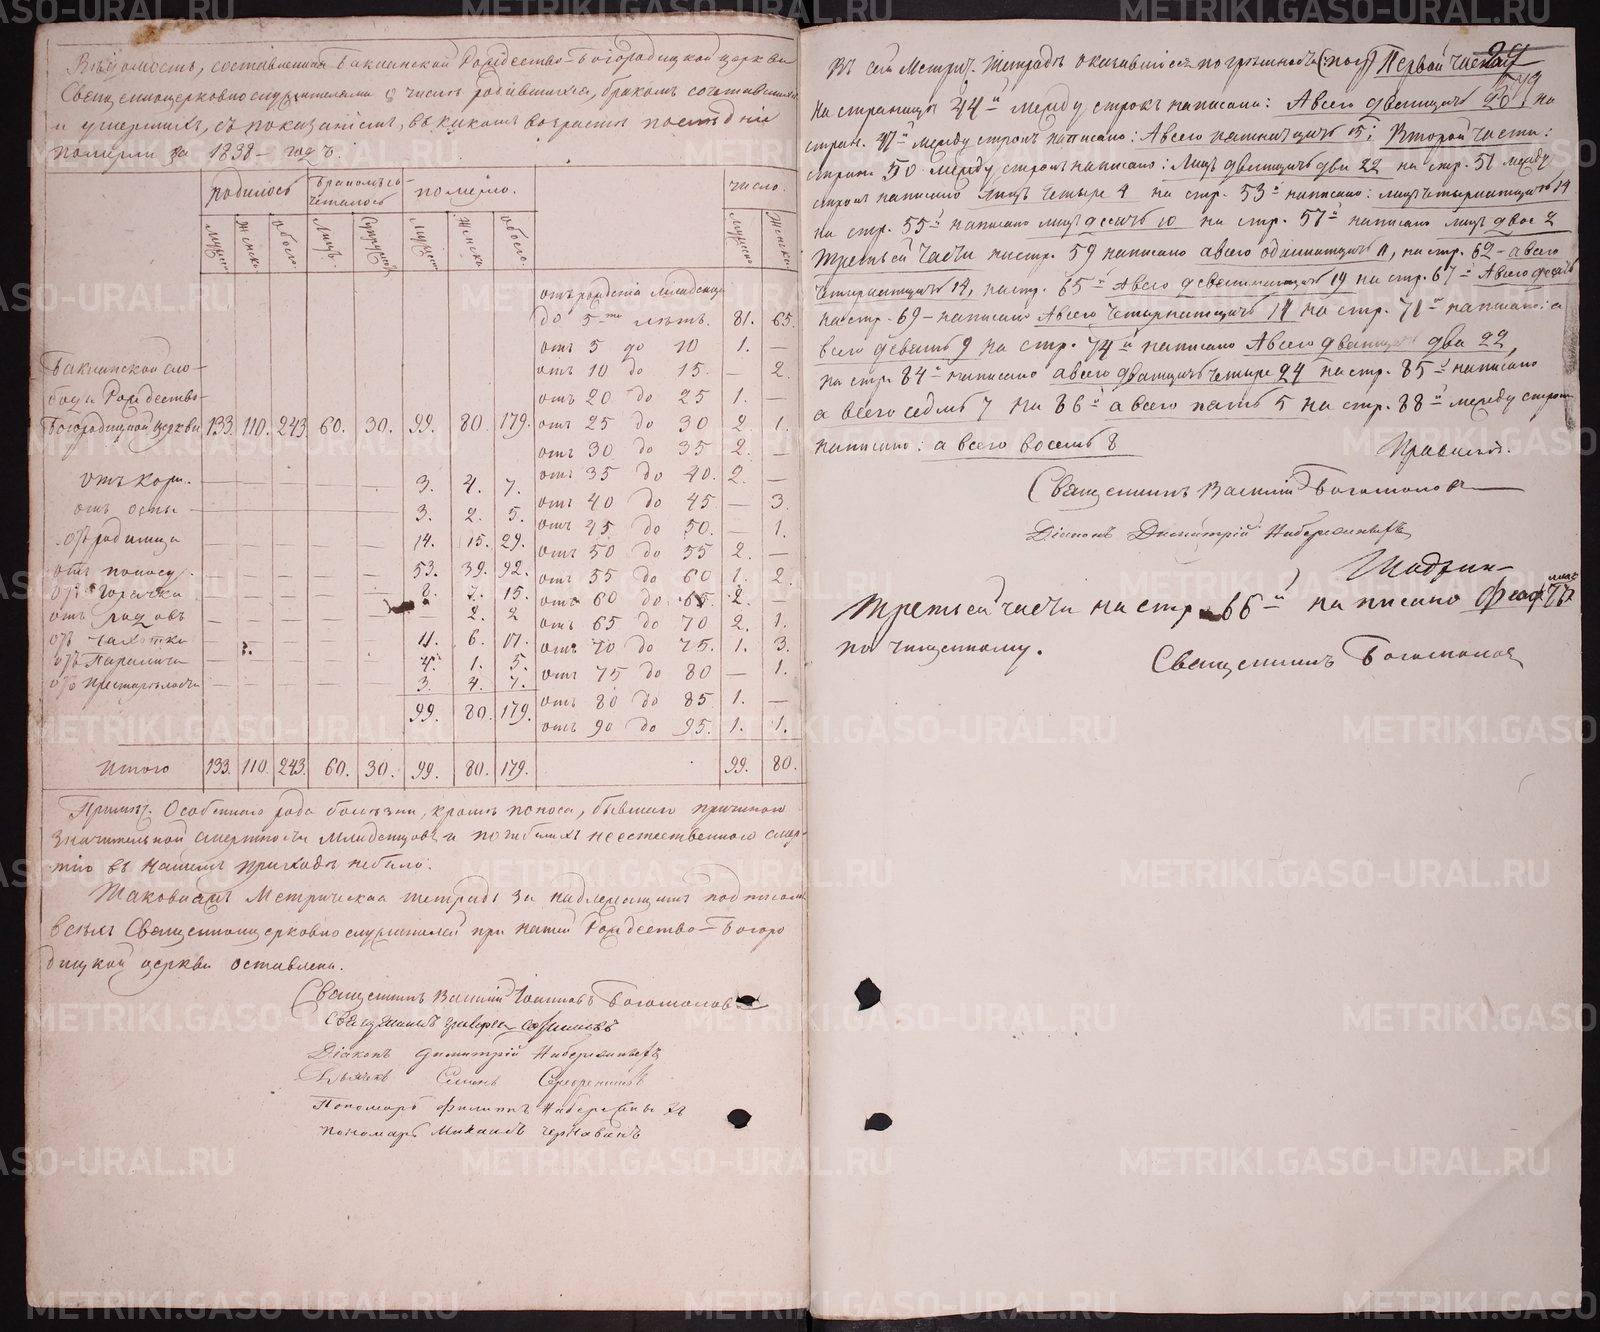 Вѣдомость, составленная Баклинской Рождество-Богородицкой церкви
Священноцерковнослужителями о числѣ родившихся, бракомъ сочетавшихся
и умершихъ, съ показанiемъ, въ какомъ возрастѣ послѣднiе
померли за 1838-годъ.
родилось
бракомъ сочеталось
померло.
число.
Мужеска
Женска
Обоего.
Лицъ.
Супружествъ
Мужеска
Женска
обоего.
Мужеска
Женска.
отъ рожденiя младенца
до 5-ти лѣтъ. 81. 65.
отъ 5 до 10 1. —
отъ 10 до 15. — 2.
отъ 20 до 25 1. —
Баклинской сло-
боды Рождество-
Богородицкой церкви 133. 110. 243 60. 30. 99. 80. 179. отъ 25 до 30 2. 1.
отъ 30 до 35 2. —
отъ кори. — — — — — 3. 4. 7. отъ 35 до 40. 2. —
отъ оспы — — — — — 3. 2. 5. отъ 40 до 45 — 3.
отъ 45 до 50. — 1.
отъ родимца — — — — — 14. 15. 29. отъ 50 до 55 2. —
отъ поносу. — — — — — 53. 39. 92. отъ 55 до 60 1. 2.
отъ горячки 8. 7. 15. отъ 60 до 65. 2. —
отъ родовъ — 2. 2 отъ 65 до 70 2. 1.
отъ чахотки 11. 6. 17. отъ 70 до 75. 1. 3.
отъ Паралича 4. 1. 5. отъ 75 до 80 — 1.
отъ престарѣлости 3. 4. 7. отъ 80 до 85 1. —
99. 80. 179. отъ 90 до 95. 1. 1.
Итого 133. 110. 243. 60. 30. 99. 80. 179. 99. 80.
Примѣч. Особеннаго рода болѣзни, кромѣ поноса, бывшаго причиною
значительной смертности младенцовъ и погибшихъ неестественною смер-
тiю въ нашемъ приходѣ небыло.
Таковаяжъ Метрическая тетрадь за надлежащимъ подписомъ
всѣхъ Священноцерковнослужителей при нашей Рождество-Богоро
дицкой церкви оставлена.
Священникъ Василiй Iоанновъ Богомоловъ
Священникъ
Дiаконъ Димитрiй
Дьячекъ Серебренниковъ
Пономарь Филиппъ
пономарь Михаилъ Чернавинъ
Въ сей Метрич. Тетрадѣ оказавшiеся погрѣшности: Первой части
На страницѣ 44й между строкъ написано: Авсего двадцать 20, на
стран. 47й между строкъ написано: Авсего пятнадцать 15; Второй части:
стран. 50 между строкъ написано: лицъ двадцать два 22 на стр. 51 между
строкъ написано лицъ четыре 4 на стр. 53й написано: лицъ четырнадцать 14
на стр. 55й написано лицъ десять 10 на стр. 57й написано лицъ двое 2
третьей части на стр. 59 написано авсего одиннадцать 11, на стр. 62-авсего
четырнадцать 14, на стр. 65й Авсего девятнадцать 19 на стр. 67й Авсего десять
на стр. 69-написано Авсего четырнадцать 14 на стр. 71й написано: а
всего девять 9 на стр. 74й написано Авсего двадцать два 22,
на стр. 84й написано авсего двадцать четыре 24 на стр. 85й написано
а всего семь 7 на 86й авсего пять 5 на стр. 88й между строкъ
написано: авсего восемь 8
Правилъ.
Священникъ Василiй Богомоловъ
Дiаконъ Димитрiй
третьей части на стр. 66й написано
по чищенному.
Священникъ Богомоловъ
METRIKI.GASO-URAL.RU